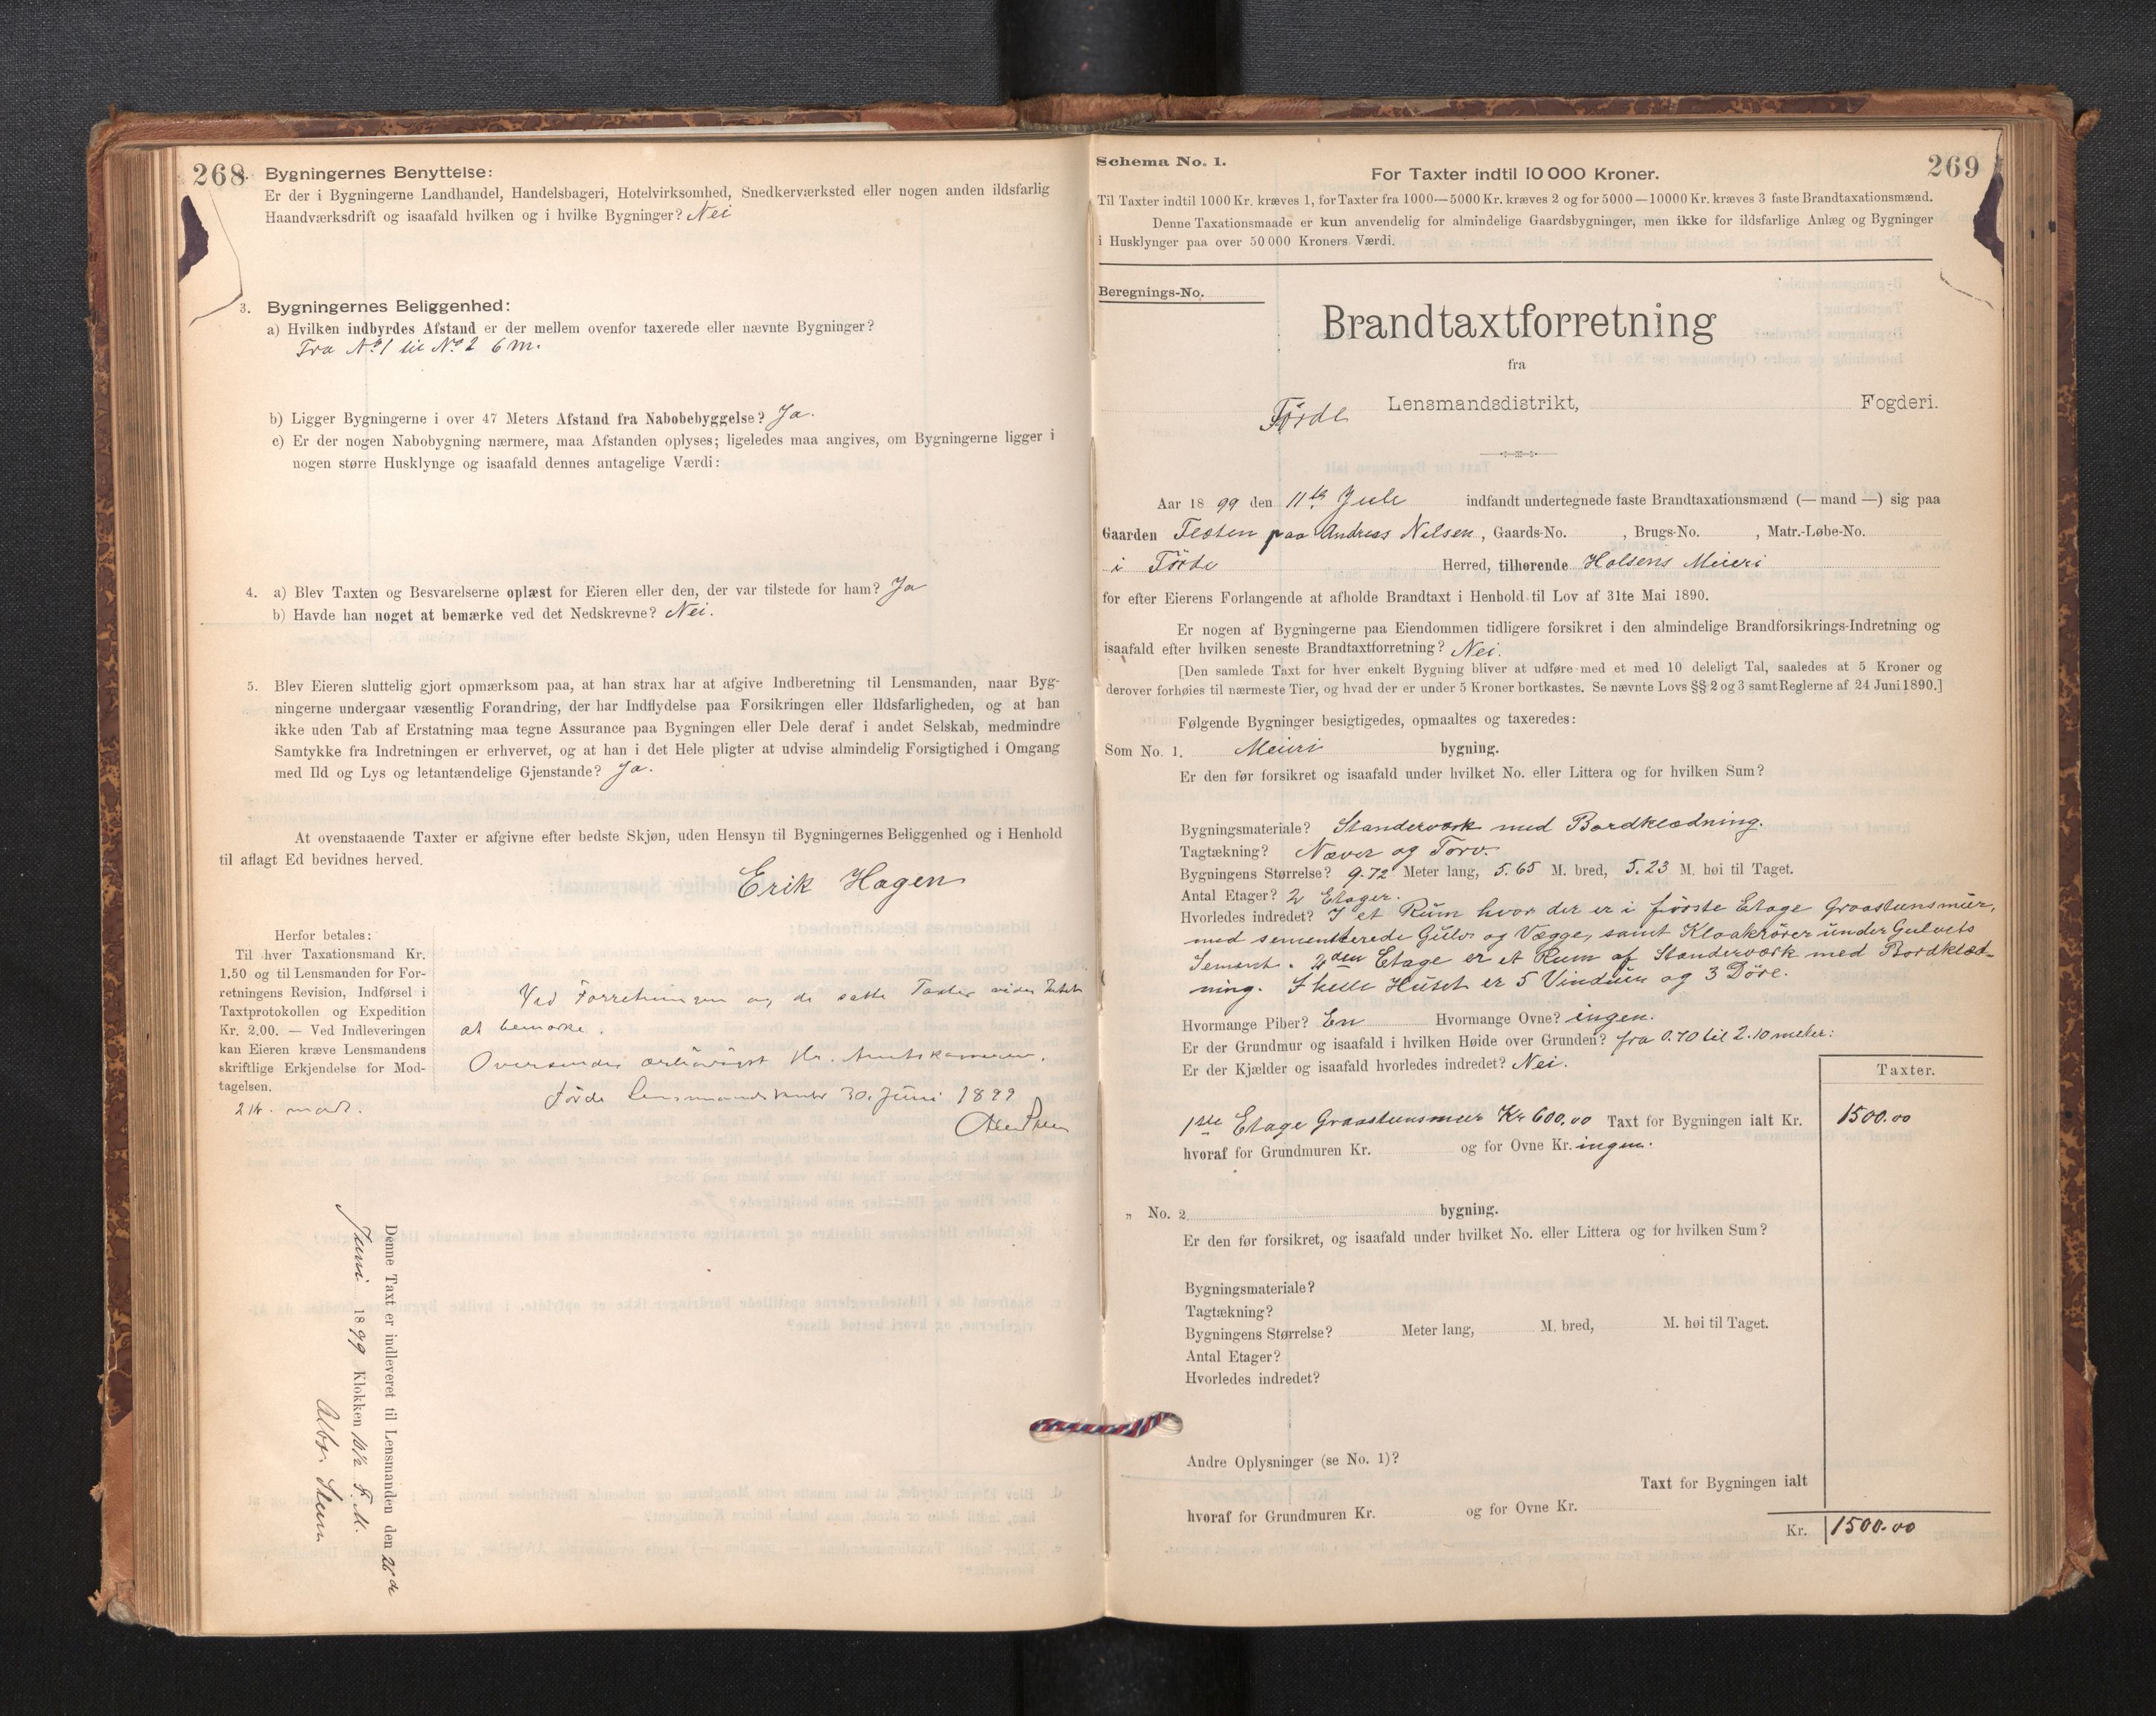 268
2. Bygningernes Benyttelse:
Er der i Bygningerne Landhandel, Handelsbageri, Hotelvirksomhed, Snedkerværksted eller nogen anden ildsfarlig
Haandværksdrift og isaafald hvilken og i hvilke Bygninger? Nei
3. Bygningernes Beliggenhed:
a) Hvilken indbyrdes Afstand er der mellem ovenfor taxerede eller nævnte Bygninger?
Fra No 1 til No 2 6 m.
b) Ligger Bygningerne i over 47 Meters Afstand fra Nabobebyggelse? Ja.
c) Er der nogen Nabobygning nærmere, maa Afstanden oplyses; ligeledes maa angives, om Bygningerne ligger i
nogen større Husklynge og isaafald dennes antagelige Værdi:
4. a) Blev Taxten og Besvarelserne oplæst for Eieren eller den, der var tilstede for ham? Ja
b) Havde han noget at bemærke ved det Nedskrevne? Nei.
5. Blev Eieren sluttelig gjort opmærksom paa, at han strax har at afgive Indberetning til Lensmanden, naar Byg-
ningerne undergaar væsentlig Forandring, der har Indflydelse paa Forsikringen eller Ildsfarligheden, og at han
ikke uden Tab af Erstatning maa tegne Assurance paa Bygningen eller Dele deraf i andet Selskab, medmindre
Samtykke fra Indretningen er erhvervet, og at han i det Hele pligter at udvise almindelig Forsigtighed i Omgang
med Ild og Lys og letantændelige Gjenstande? Ja.
At ovenstaaende Taxter er afgivne efter bedste Skjøn, uden Hensyn til Bygningernes Beliggenhed og i Henhold
til aflagt Ed bevidnes herved.
Erik Hagen
Herfor betales:
Til hver Taxationsmand Kr.
1.50 og til Lensmanden for For-
retningens Revision, Indførsel i
Taxtprotokollen og Expedition
Kr. 2.00. — Ved Indleveringen
kan Eieren kræve Lensmandens
skriftlige Erkjendelse for Mod-
tagelsen.
Ved Forretningen og de satte Taxter vides Intet
at bemærke.
Oversendes ærbødigst Hr. Amtskasserer.
Förde Lensmandskontor 30. Juni 1899
Denne Taxt er indleveret til Lensmanden den 26de
Juni 1899 Klokken 10 1/2 F. M.
Alb. Steen
Schema No. 1.
269
For Taxter indtil 10 000 Kroner.
Til Taxter indtil 1000 Kr. kræves 1, for Taxter fra 1000—5000 Kr. kræves 2 og for 5000—10000 Kr. kræves 3 faste Brandtaxationsmænd.
Denne Taxationsmaade er kun anvendelig for almindelige Gaardsbygninger, men ikke for ildsfarlige Anlæg og Bygninger
i Husklynger paa over 50 000 Kroners Værdi.
Beregnings-No.
Brandtaxtforretning
fra
Förde Lensmandsdistrikt, Fogderi.
Aar 1899 den 11te Juli indfandt undertegnede faste Brandtaxationsmænd (— mand —) sig paa
Gaarden Testen paa Andreas Nilsen, Gaards-No. , Brugs-No. , Matr.-Løbe-No.
i Förde Herred, tilhørende Holsens Meieri
for efter Eierens Forlangende at afholde Brandtaxt i Henhold til Lov af 31te Mai 1890.
Er nogen af Bygningerne paa Eiendommen tidligere forsikret i den almindelige Brandforsikrings-Indretning og
isaafald efter hvilken seneste Brandtaxtforretning? Nei.
[Den samlede Taxt for hver enkelt Bygning bliver at udføre med et med 10 deleligt Tal, saaledes at 5 Kroner og
derover forhøies til nærmeste Tier, og hvad der er under 5 Kroner bortkastes. Se nævnte Lovs §§ 2 og 3 samt Reglerne af 24 Juni 1890.]
Følgende Bygninger besigtigedes, opmaaltes og taxeredes:
Som No. 1. Meieri bygning.
Er den før forsikret og isaafald under hvilket No. eller Littera og for hvilken Sum?
Bygningsmateriale? Standerværk med Bordklædning.
Tagtækning? Næver og Torv.
Bygningens Størrelse? 9.72 Meter lang, 5.65 M. bred, 5.23 M. høi til Taget.
Antal Etager? 2 Etager.
Hvorledes indredet? I et Rum hvor der er i förste Etage Graastensmur,
med sementerede Gulv og Vægge, samt Kloakrörer under Gulvets
Sement. 2den Etage er et Rum af Standerværk med Bordklæd-
ning. I hele Huset er 5 Vinduer og 3 Döre.
Hvormange Piber? En Hvormange Ovne? ingen.
Er der Grundmur og isaafald i hvilken Høide over Grunden? fra 0.70 til 2.10 meter:
Er der Kjælder og isaafald hvorledes indredet? Nei.
Taxter.
1ste Etage Graastensmur Kr 600.00 Taxt for Bygningen ialt Kr. 1500.00
hvoraf for Grundmuren Kr. og for Ovne Kr. ingen.
„ No. 2 bygning.
Er den før forsikret, og isaafald under hvilket No. eller Littera og for hvilken Sum?
Bygningsmateriale?
Tagtækning?
Bygningens Størrelse? Meter lang, M. bred, M. høi til Taget.
Antal Etager?
Hvorledes indredet?
Andre Oplysninger (se No. 1)?
Taxt for Bygningen ialt
hvoraf for Grundmuren Kr. og for Ovne Kr.
Kr. 1500.00